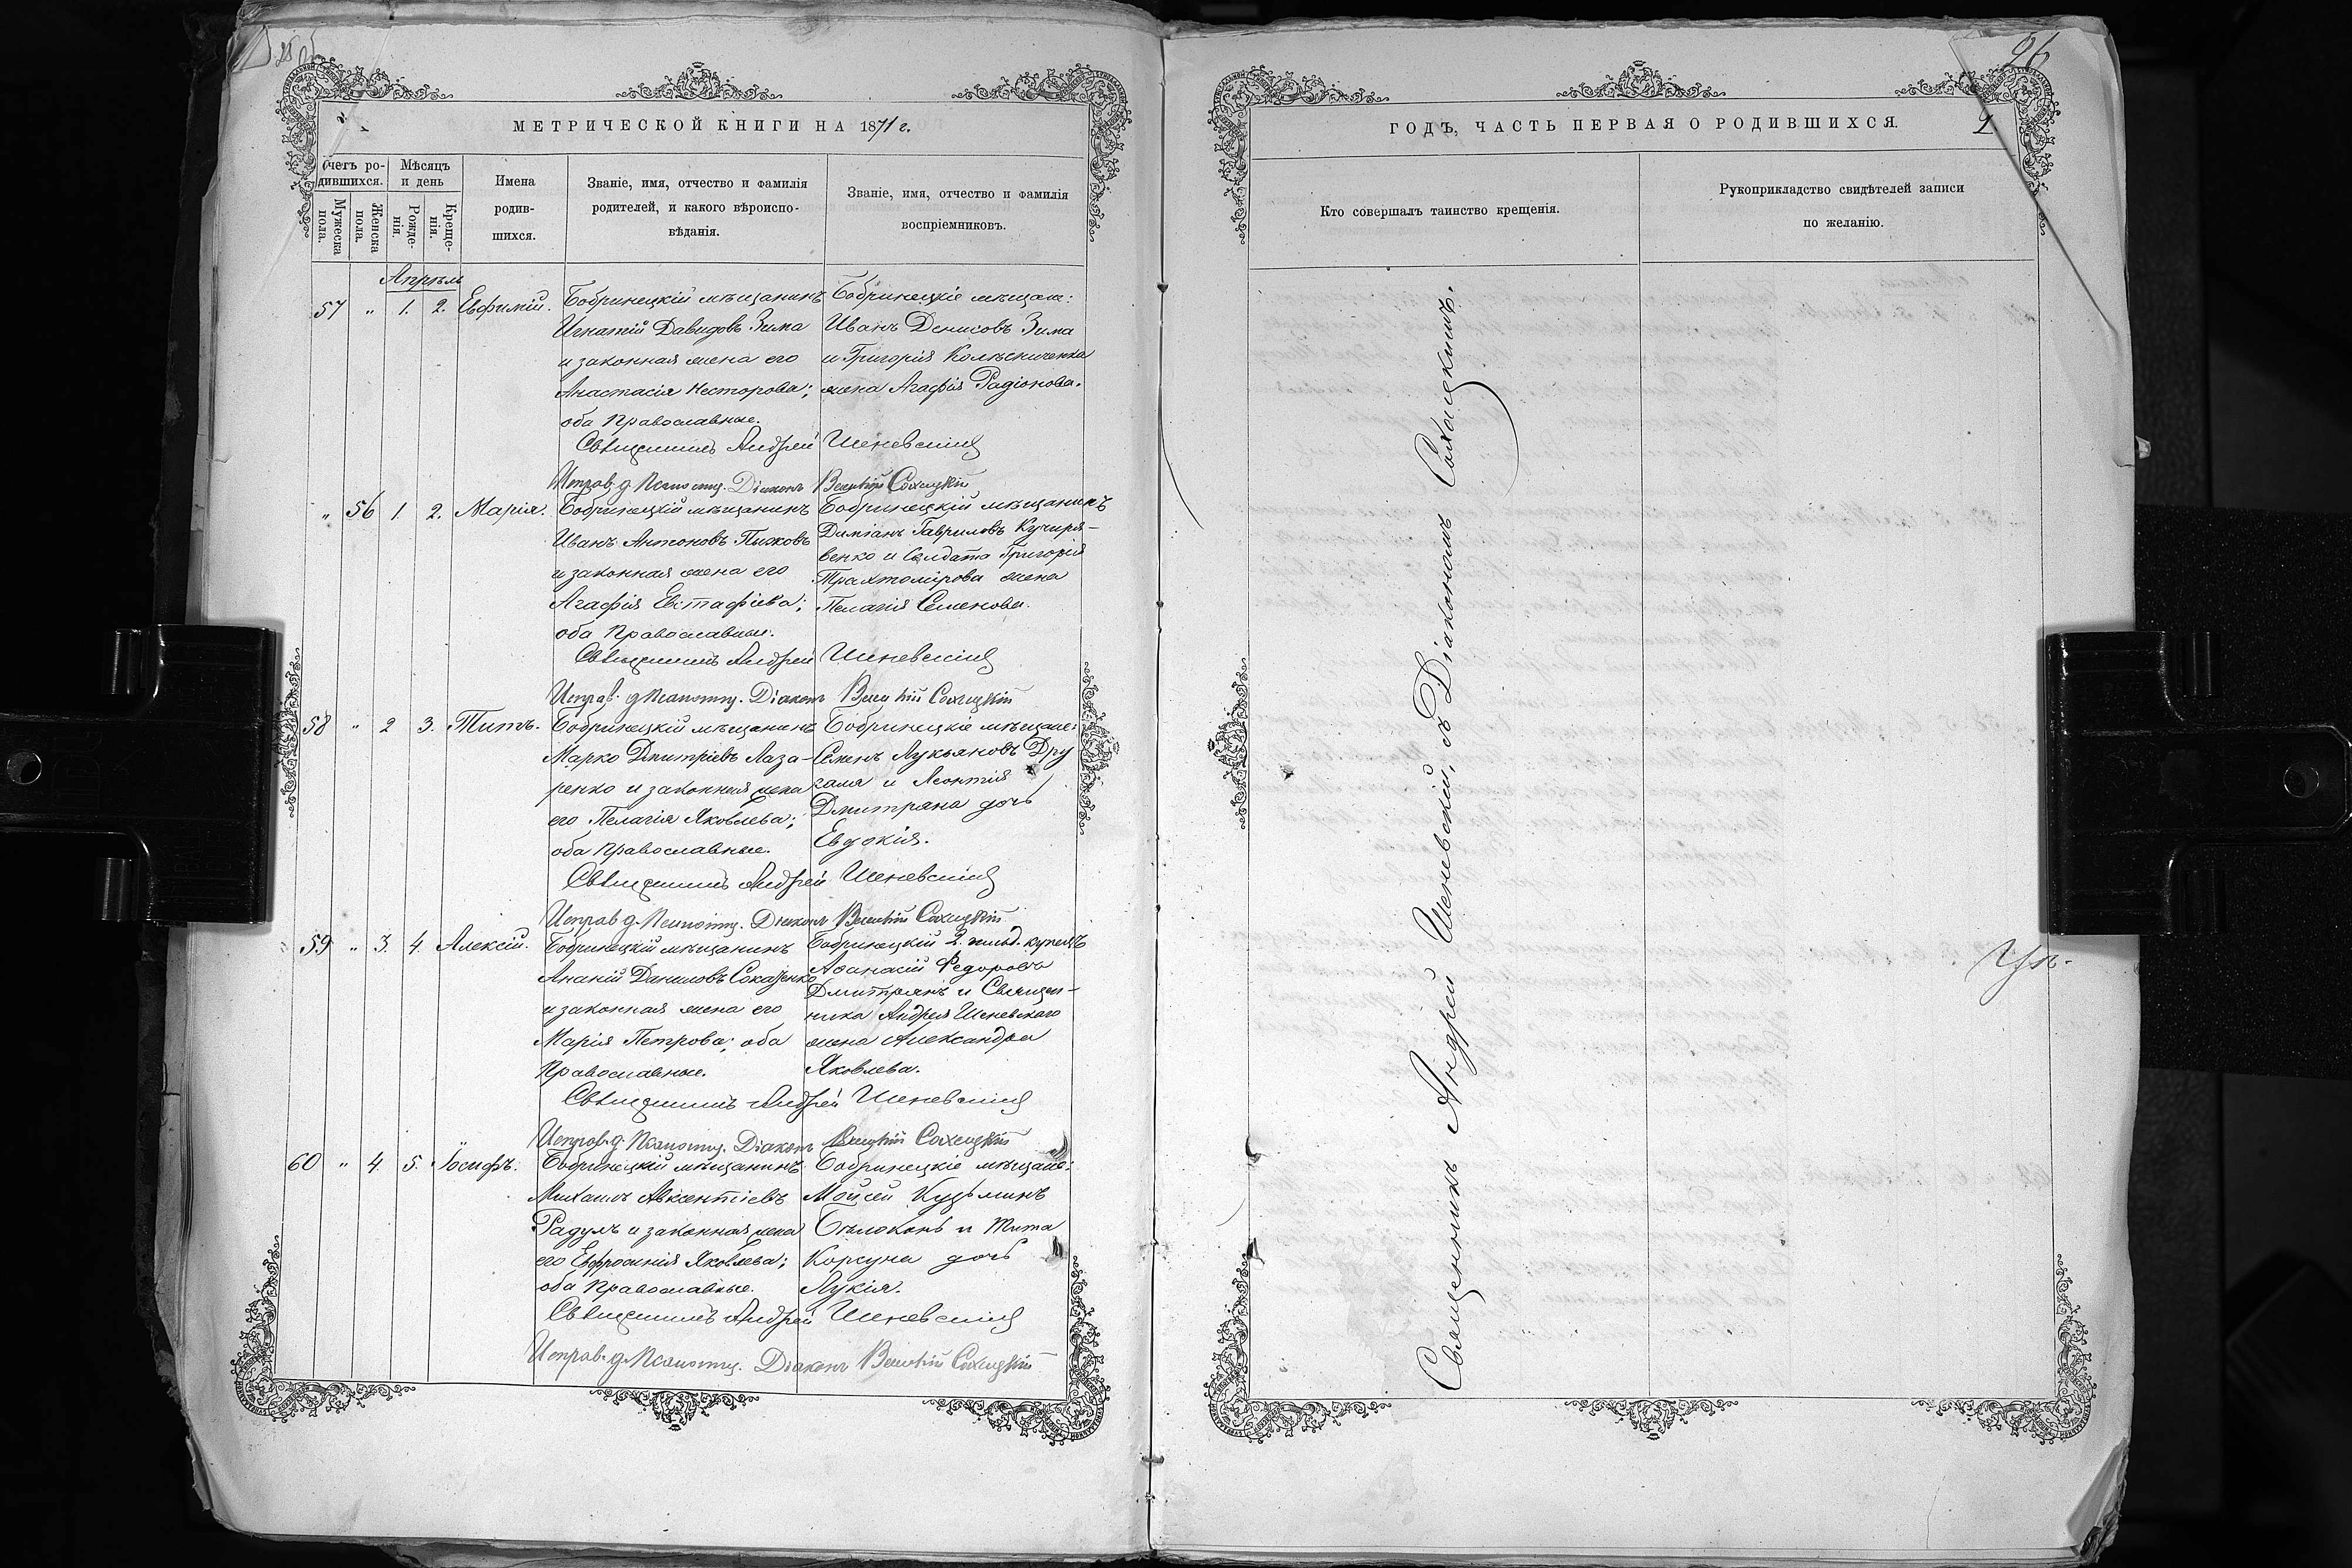 МЕТРИЧЕСКОЙ КНИГИ НА 1871 г.
Счетъ родившихся.
Мужеска пола.
Женска пола.
Мѣсяцъ и день
Рожденія.
Крещенія.
Имена родившихся.
Званіе, имя, отчество и фамилія
родителей, и какого вѣроиспо-
вѣданія.
Званіе, имя, отчество и фамилія
воспріемниковъ.
Апрѣль
57 " 1. 2. Евфимій.
Бобринецкій мѣщанинъ
Игнатій Давидовъ Зима
и законная жена его
Анастасія Несторова;
оба Православные.
Бобринецкіе мѣщане:
Иванъ Денисовъ Зима
и Григорія Колѣсниченка
жена Агафія Радіонова.
Священникъ Андрей Шеневскій
Исправ. д. Псаломщ. Діаконъ Сохацкій
" 56 1. 2. Марія.
Бобринецкій мѣщанинъ
Иванъ Антоновъ Пыжовъ
и законная жена его
Агафія Евстафіева;
оба Православные.
Бобринецкій мѣщанинъ
Даміанъ Гавриловъ Кучеря-
венко и Солдата Григорія
Трахтомірова жена
Пелагія Семенова.
Священникъ Андрей Шеневскій
Исправ. д. Псаломщ. Діаконъ Сохацкій
58 " 2 3. Титъ.
Бобринецкій мѣщанинъ
Марко Дмитріевъ Лаза-
ренко и законная жена
его Пелагія Яковлева;
оба Православные.
Бобринецкіе мѣщане:
Семенъ Лукьяновъ Дру
и Леонтія
Дмитряна дочь
Евдокія.
Священникъ Андрей Шеневскій
Исправ. д. Псаломщ. Діаконъ Сохацкій
59 " 3. 4. Алексій.
Бобринецкій мѣщанинъ
Ананій Даниловъ
и законная жена его
Марія Петрова; оба
Православные.
Бобринецкій 2. гильд. купецъ
Афанасій Федоровъ
Дмитрянъ и Священ-
ника Андрея Шеневскаго
жена Александра
Яковлева.
Священникъ Андрей Шеневскій
Исправ. д. Псаломщ. Діаконъ Сохацкій
60 " 4. 5. Іосифъ.
Бобринецкій мѣщанинъ
Михаилъ Авксентіевъ
Радулъ и законная жена
его Евфросинія Яковлева;
оба Православные.
Бобринецкіе мѣщане:
Мойсей Кузьминъ
Бѣлоконь и Тита
Корсуна дочь
Лукія.
Священникъ Андрей Шеневскій
Исправ. д. Псаломщ. Діаконъ Сохацкій
26
ГОДЪ, ЧАСТЬ ПЕРВАЯ О РОДИВШИХСЯ.
Кто совершалъ таинство крещенія.
Рукоприкладство свидѣтелей записи
по желанію.
Священникъ Андрей Шеневскій, съ Діакономъ Сохацкимъ.